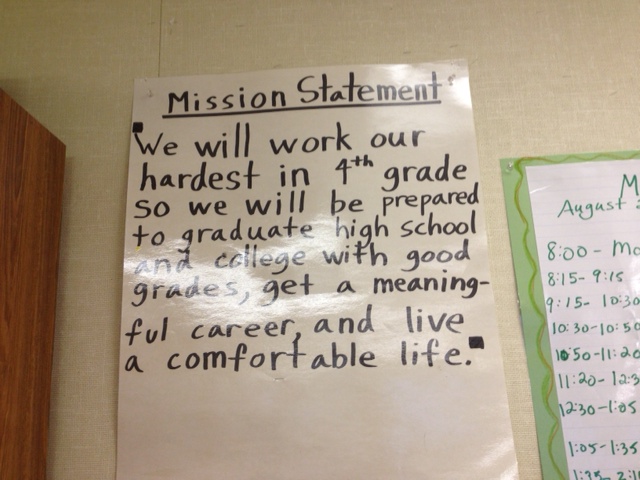 Mission Statement
We will work our
hardest in 4th grade
so we will be prepared
to graduate high school
and college with good
grades, get a meaning-
ful career, and live
a comfortable life.
M
August
8:00 - Mo
8:15- 9:15
9:15- 10:30
10:30-10:50
10:50-11:20
11:20- 12:3
12:30-1:05
1:05-1:35